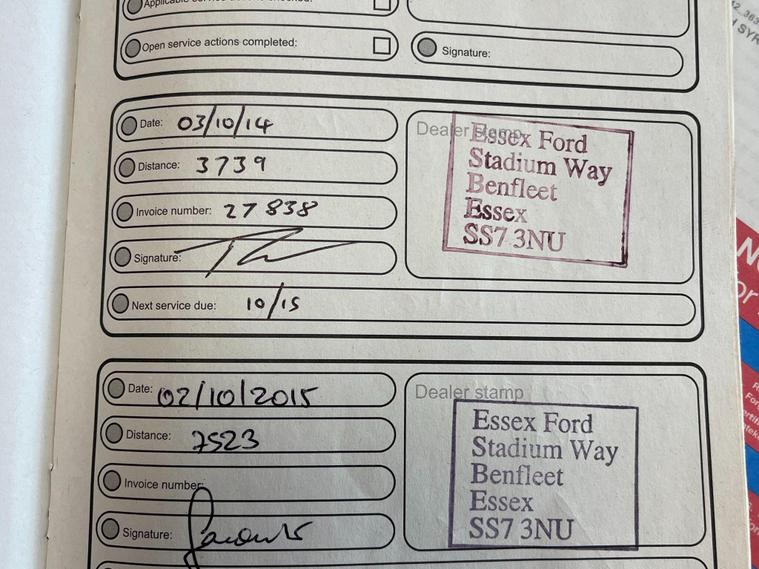 Open service actions completed:
Signature:
Date: 03/10/14
Distance: 3739
Invoice number: 27838
Signature:
Next service due: 10/15
Dealer stamp
Essex Ford
Stadium Way
Benfleet
Essex
SS7 3NU
Date: 02/10/2015
Distance: 7523
Invoice number:
Signature:
Dealer stamp
Essex Ford
Stadium Way
Benfleet
Essex
SS7 3NU